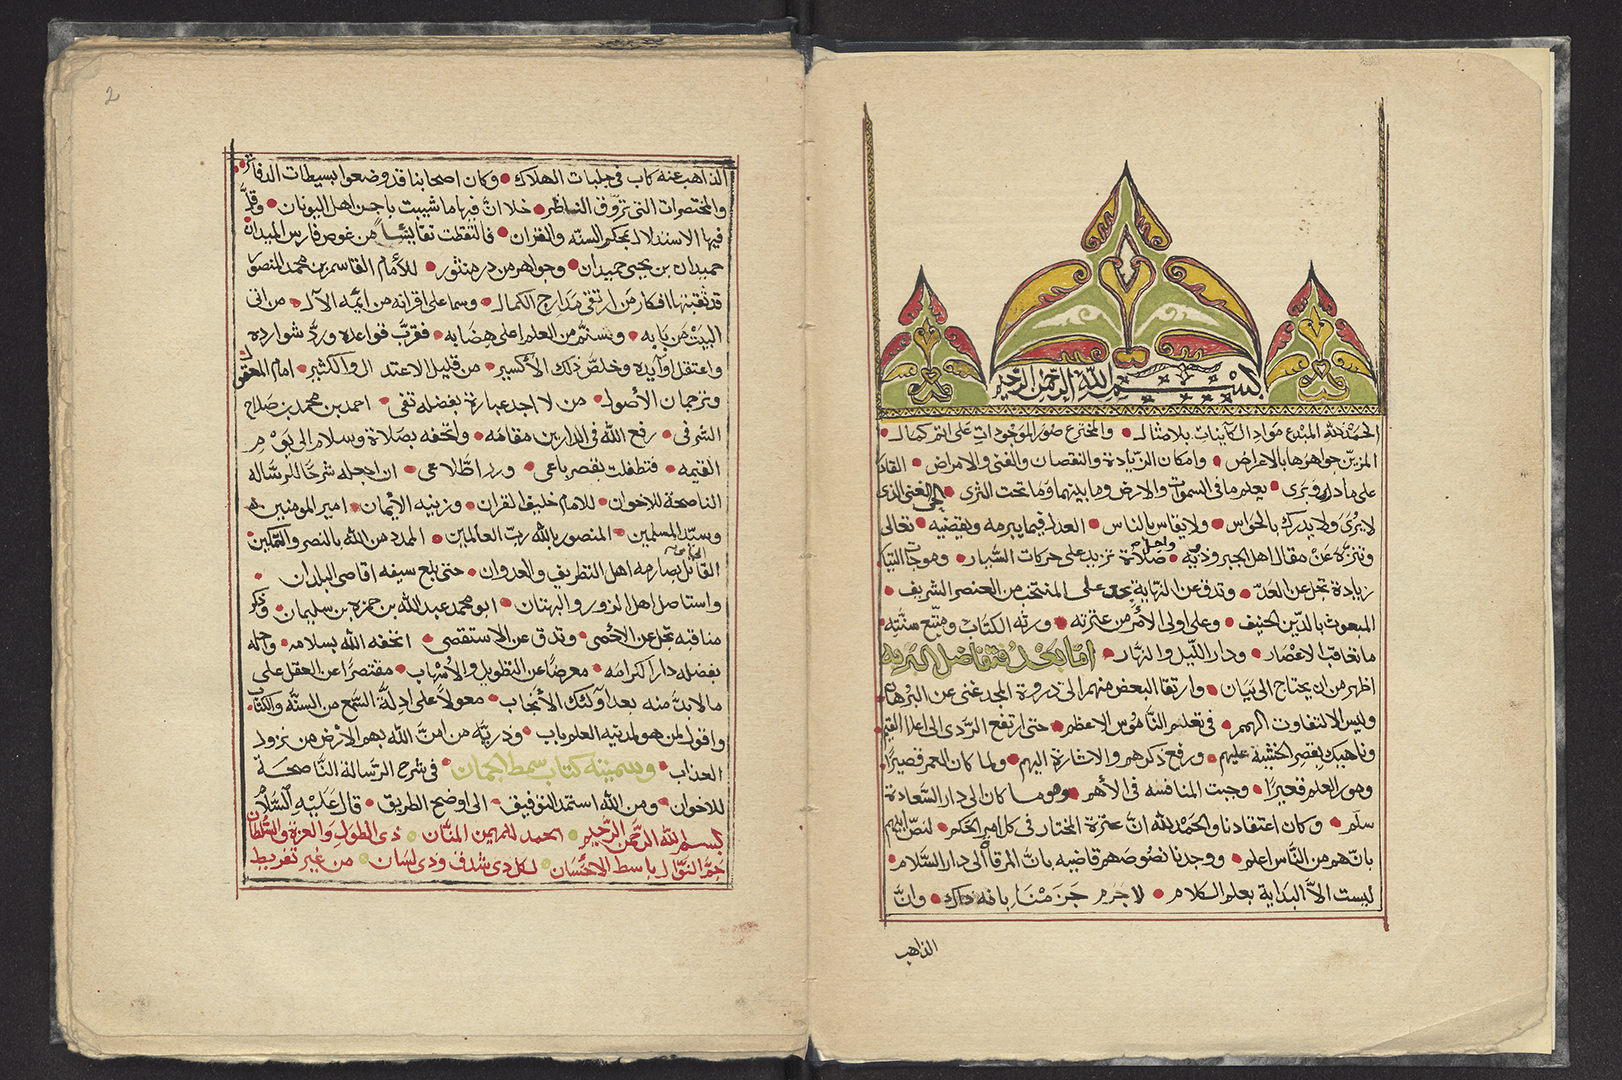 بسم الله الرحمن الرحيم
الحمد لله المبدع مواد الكاينات بلا مثال والمخترع صور الموجودات على اتم كمال
المزيّن جواهرها بالاعراض وامكان الزّيادة والنقصان والغنى والامراض القادر
على ما ذرا وبرى يعلم ما فى السموات والارض وما بينهما وما تحت الثرى الحى الغنى الذى
لا يُرى ولا يدرك بالحواس ولا يقاس بالناس العدل فيما يبرمه ويقضيه تعالى
وتنزه عن مقال اهل الجبر وذويه صلاة تزيد على حركات السّيار وموجات التيار
زيادة تجل عن العدّ وتدق عن النهاية بحدّ على المنتخب من العنصر الشريف
المبعوث بالدّين الحنيف وعلى اولى الأمر من عترته ورثه الكتاب ومتّبع سنّته
ما تعاقب الاعصار ودار اللّيل والنهار امّا بعد فتفاضل البريه
اظهر من ان يحتاج الى بيان وارتقا البعض منهم الى ذروة المجد غنى عن البرهان
وليس الا لتفاوت الهمم فى تعلم النّاموس الاعظم حتى ارتفع الرّدى الى اعلا القيم
وناهيك بقصر الخشية عليهم ورفع ذكرهم والاشارة اليهم ولما كان العمر قصيرًا
وبحور العلم قعيرًا وجبت المنافسه فى الأهم وهو ما كان الى دار السّعادة
سلم وكان اعتقادنا والحمد لله انّ عترة المختار فى كل امر الحكم لنصّ ابيهم
بانّهم من النّاس اعلم ووجدنا نصوصهم قاضيه بانّ المرقاة الى دار السّلام
ليست الاّ البداية بعلم الكلام لا جرم جزمنا بانه ذلك وانّ
الذاهب
2
الذاهب عنه كاب فى جلبات الهلاك وكان اصحابنا قد وضعوا بسيطات الدفاتر
والمختصرات التى تروّق الناظر خلا انّ فيها ما شيبت باجن اهل اليونان وقلّ
فيها الاستدلال بمحكم السنه والقران فالتقطت نفايسًا من غوص فارس الميدان
حميدان بن يحيى حميدان وجواهر من در منثور للأمام القاسم بن محمد المنصور
قد ثقبتها افكار من ارتقى مدارج الكمال وسما على اقرانه من ائمه الآل من اتى
البيت من بابه وتسنّم من العلم اعلى هضابه فقرّب قواعده وردّ شوارده
واعتقل اوآبده وخلصّ ذلك الأكسير من قليل الاعتدال والكثير امام المحققين
وترجمان الأصول من لا اجد عبارة بفضله تفى احمد بن محمد بن صلاح
الشرفى رفع الله فى الدارين مقامه واتحفه بصلاة وسلام الى يوم
القيمه فتطفلت بقصر باعى وردا اطّلاعى ان اجعله شرحًا للرسّاله
الناصحة للاخوان للامام خليف القران وترنيه الأيمان امير المومنين
وسيّد المسلمين المنصور بالله ربّ العالمين الممدد من الله بالنصر والتّمكين
القاتل بصارمه اهل التطريف والعدوان حتى بلغ سيفه اقاصى البلدان
واستاصل اهل الزور والبهتان ابو محمد عبد الله بن حمزه بن سليمان وذكر
مناقبه تجل عن الاحصى وتدق عن الاستقصى اتحفه الله بسلامه واحله
بفضله دار كرامه معرضًا عن التطويل والأسهاب مقتصرًا عن العقل على
ما لا بدّ منه بعد اولئك الأنجاب معولاً على ادلّة السّمع من السنّه والكتاب
واقول لمن هو لمدينه العلم باب وذريّه من امنّ الله بهم الأرض من نزول
العذاب وسميته كتاب سمط الجمان فى شرح الرّسالة النّاصحة
للاخوان ومن الله استمد التوفيق الى اوضح الطريق قال عَلَيْه السّلام
بسم الله الرّحمن الرّحيم الحمد لله المهيمن المنّان ذى الطول والعزة والسّلطان
جمّ النّوال باسط الاحسان لكل ذى شدف وذى لسان من غير تفريط